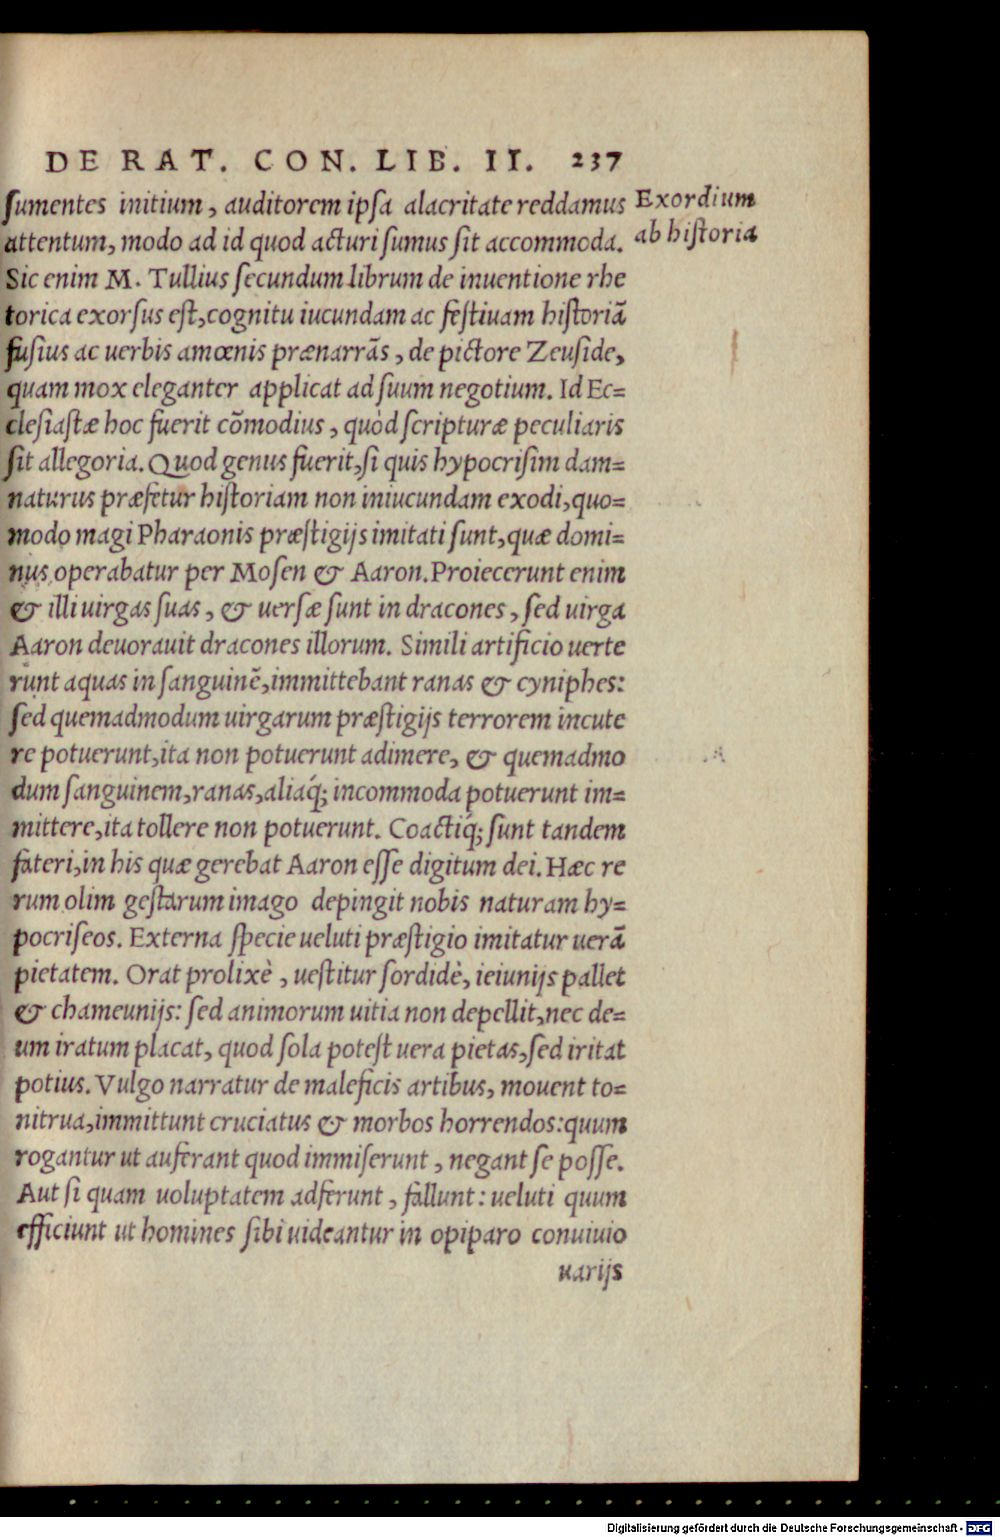 DE RAT. CON. LIB. II. 237
sumentes initium, auditorem ipsa alacritate reddamus
attentum, modo ad id quod acturi sumus sit accommoda.
Exordium
ab historia
Sic enim M. Tullius secundum librum de inuentione rhe
torica exorsus est, cognitu iucundam ac festiuam historiã
fusius ac uerbis amœnis prænarrãs, de pictore Zeuside,
quam mox eleganter applicat ad suum negotium. Id Ec=
clesiastæ hoc fuerit cõmodius, quòd scripturæ peculiaris
sit allegoria. Quod genus fuerit, si quis hypocrisim dam=
naturus præfetur historiam non iniucundam exodi, quo=
modo magi Pharaonis præstigijs imitati sunt, quæ domi=
nus operabatur per Mosen & Aaron. Proiecerunt enim
& illi uirgas suas, & uersæ sunt in dracones, sed uirga
Aaron deuorauit dracones illorum. Simili artificio uerte
runt aquas in sanguinẽ, immittebant ranas & cyniphes:
sed quemadmodum uirgarum præstigijs terrorem incute
re potuerunt, ita non potuerunt adimere, & quemadmo
dum sanguinem, ranas, aliaq́; incommoda potuerunt im=
mittere, ita tollere non potuerunt. Coactiq́; sunt tandem
fateri, in his quæ gerebat Aaron esse digitum dei. Hæc re
rum olim gestarum imago depingit nobis naturam hy=
pocriseos. Externa specie ueluti præstigio imitatur uerã
pietatem. Orat prolixè, uestitur sordidè, ieiunijs pallet
& chameunijs: sed animorum uitia non depellit, nec de=
um iratum placat, quod sola potest uera pietas, sed iritat
potius. Vulgo narratur de maleficis artibus, mouent to=
nitrua, immittunt cruciatus & morbos horrendos: quum
rogantur ut auferant quod immiserunt, negant se posse.
Aut si quam uoluptatem adferunt, fallunt: ueluti quum
efficiunt ut homines sibi uideantur in opiparo conuiuio
uarijs
Digitalisierung gefördert durch die Deutsche Forschungsgemeinschaft - DFG